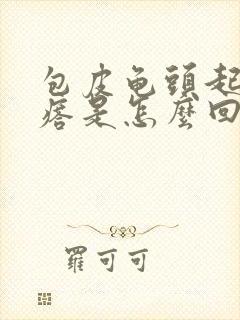 包皮龟頭起
痞是怎麼回
羅可可